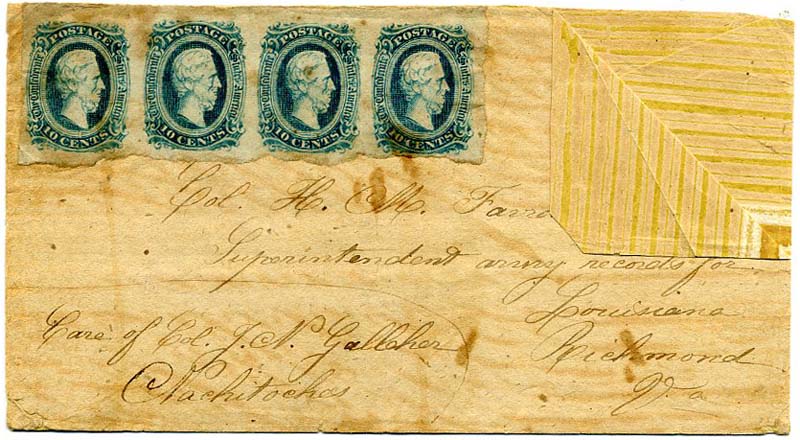 POSTAGE POSTAGE POSTAGE POSTAGE
The Confederate States of America The Confederate States of America The Confederate States of America The Confederate States of America
10 CENTS 10 CENTS 10 CENTS 10 CENTS
Col. H. M. Favro
Superintendent army records for
Louisiana
Care of Col. J. N. Gallcher Richmond
Nachitoches Va